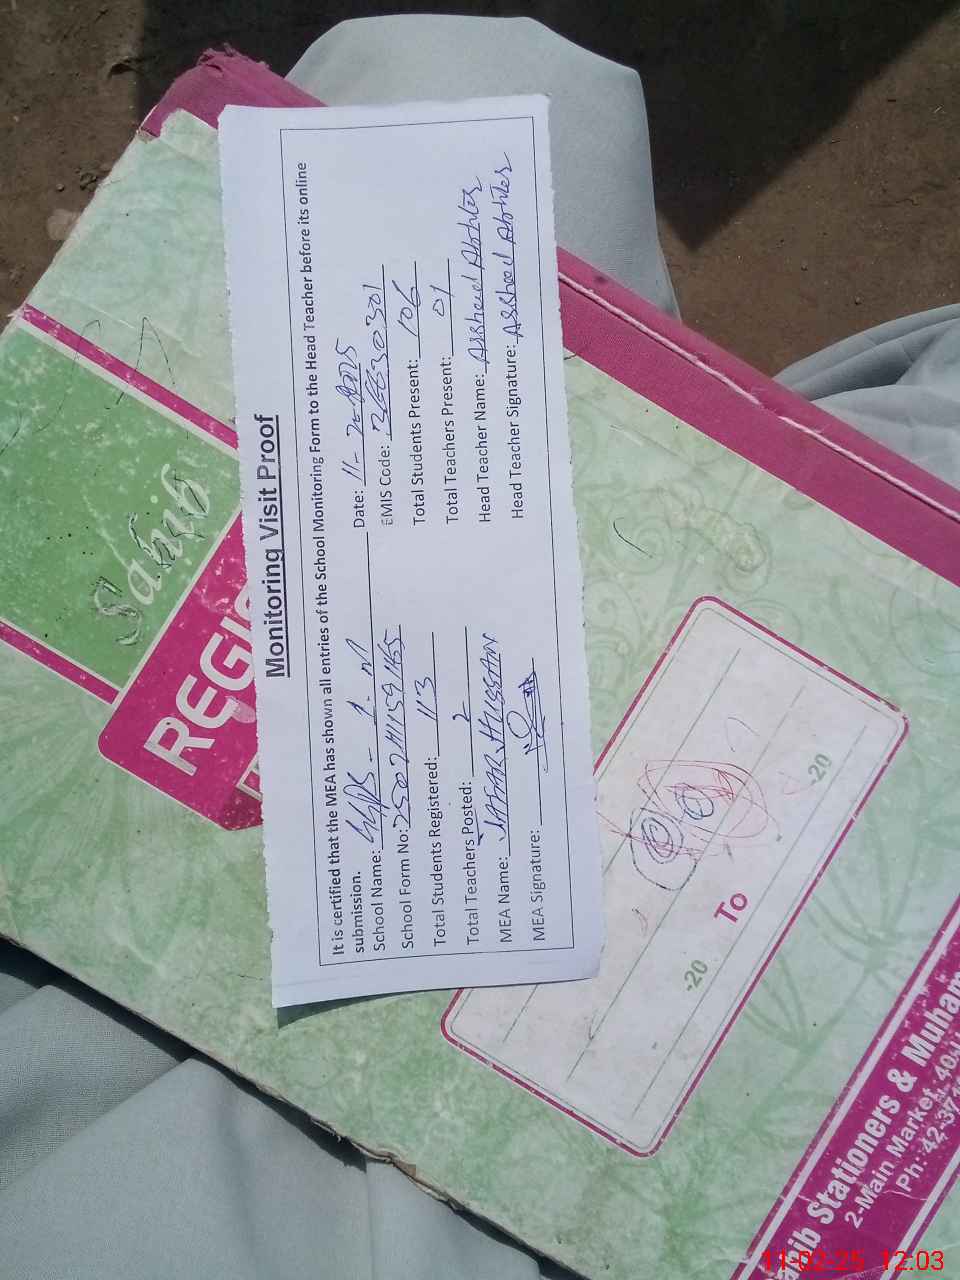 Monitoring Visit Proof
It is certified that the MEA has shown all entries of the School Monitoring Form to the Head Teacher before its online
submission.
School Name: Date: 11-
School Form No: EMIS Code:
Total Students Registered: 113 Total Students Present: 106
Total Teachers Posted: 2 Total Teachers Present: 01
MEA Name: JAFAR HUSSAIN Head Teacher Name:
MEA Signature: Head Teacher Signature:
Sahib
REGIS
To
-20
-20
ib Stationers & Muham
2-Main Market
Ph: 42-37
11-02-25 12:03